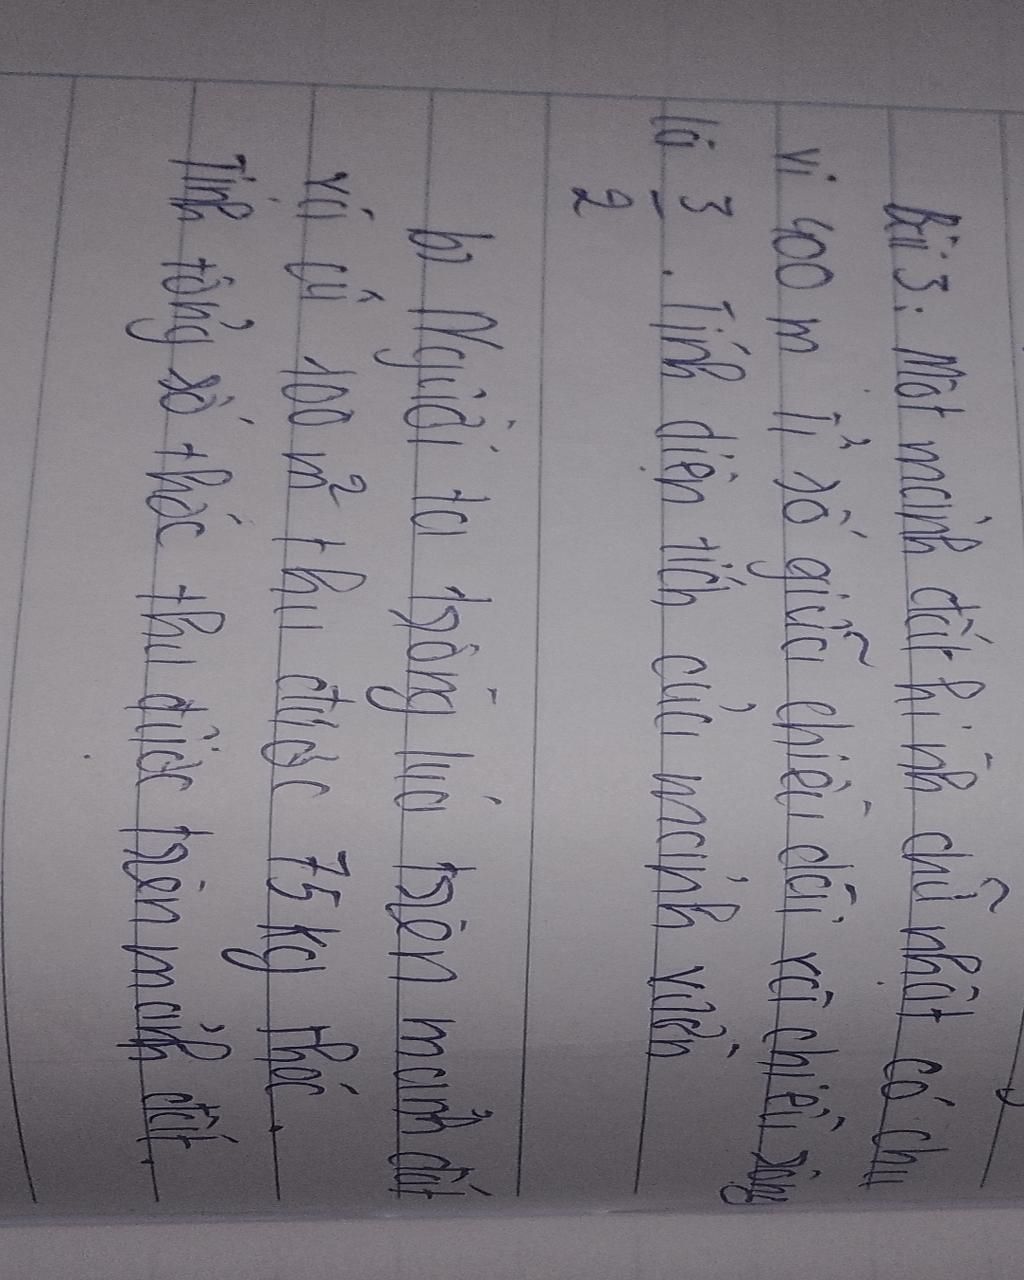 Bài 3: Một mảnh đất hình chữ nhật có chu
vi 400 m Tỉ số giữa chiều dài và chiều rộng
là 3/2. Tính diện tích của mảnh vườn
b) Người ta trồng lúa trên mảnh đất
và cứ 100 m² thu được 75 kg thóc.
Tính tổng số thóc thu được trên mảnh đất.